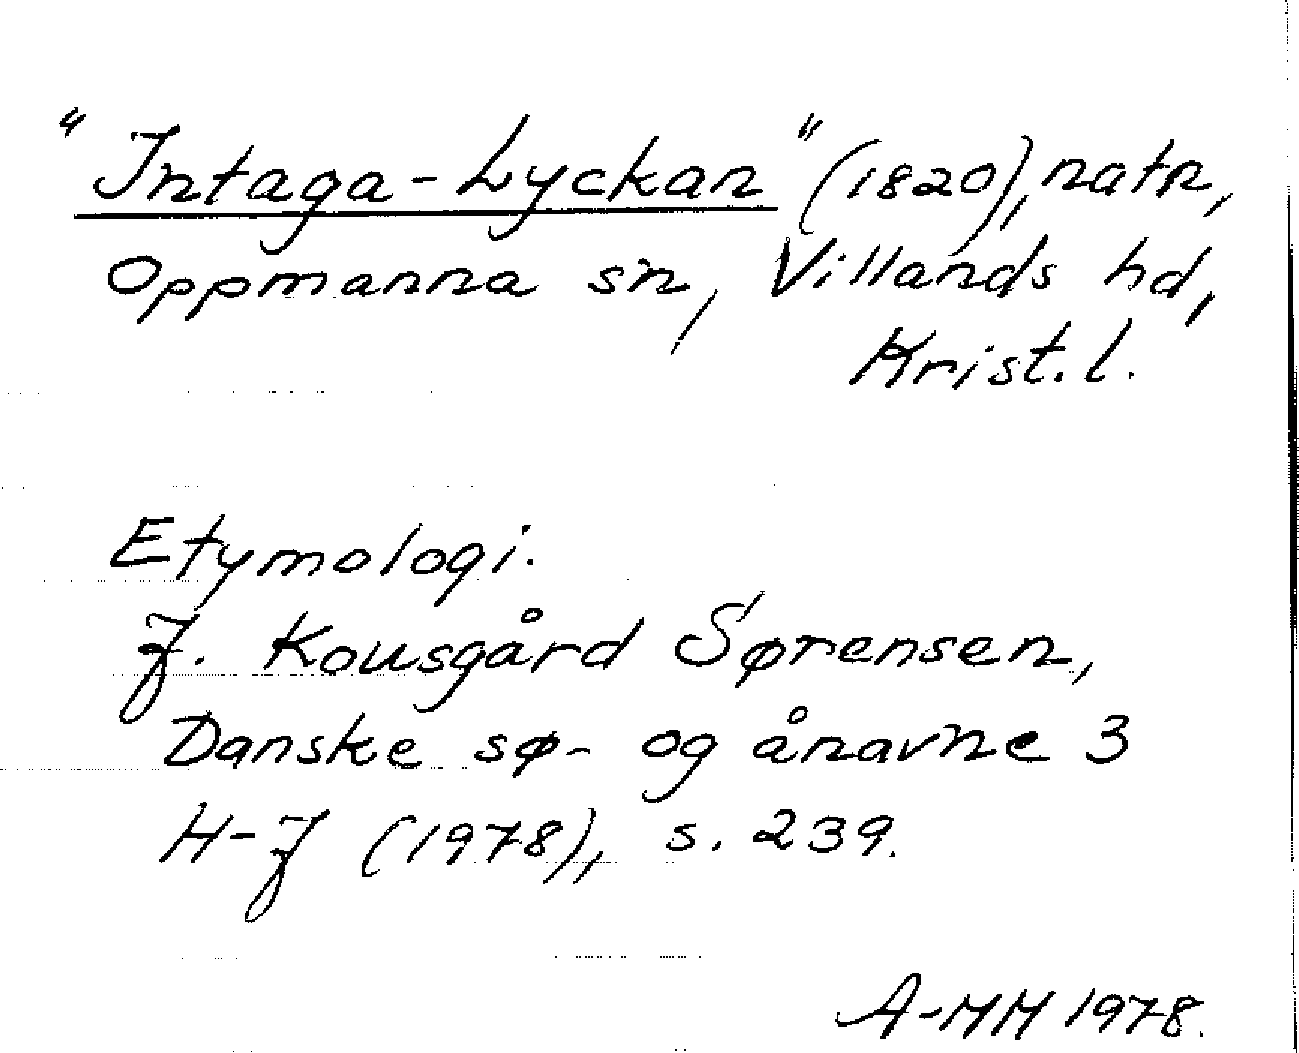 "Intaga-Lyckan" (1820), natn,
Oppmanna sn, Villands hd,
Krist. l.
Etymologi.
J. Kousgård Sørensen,
Danske sø- og ånavne 3
H-J (1978), s. 239.
A-MM 1978.